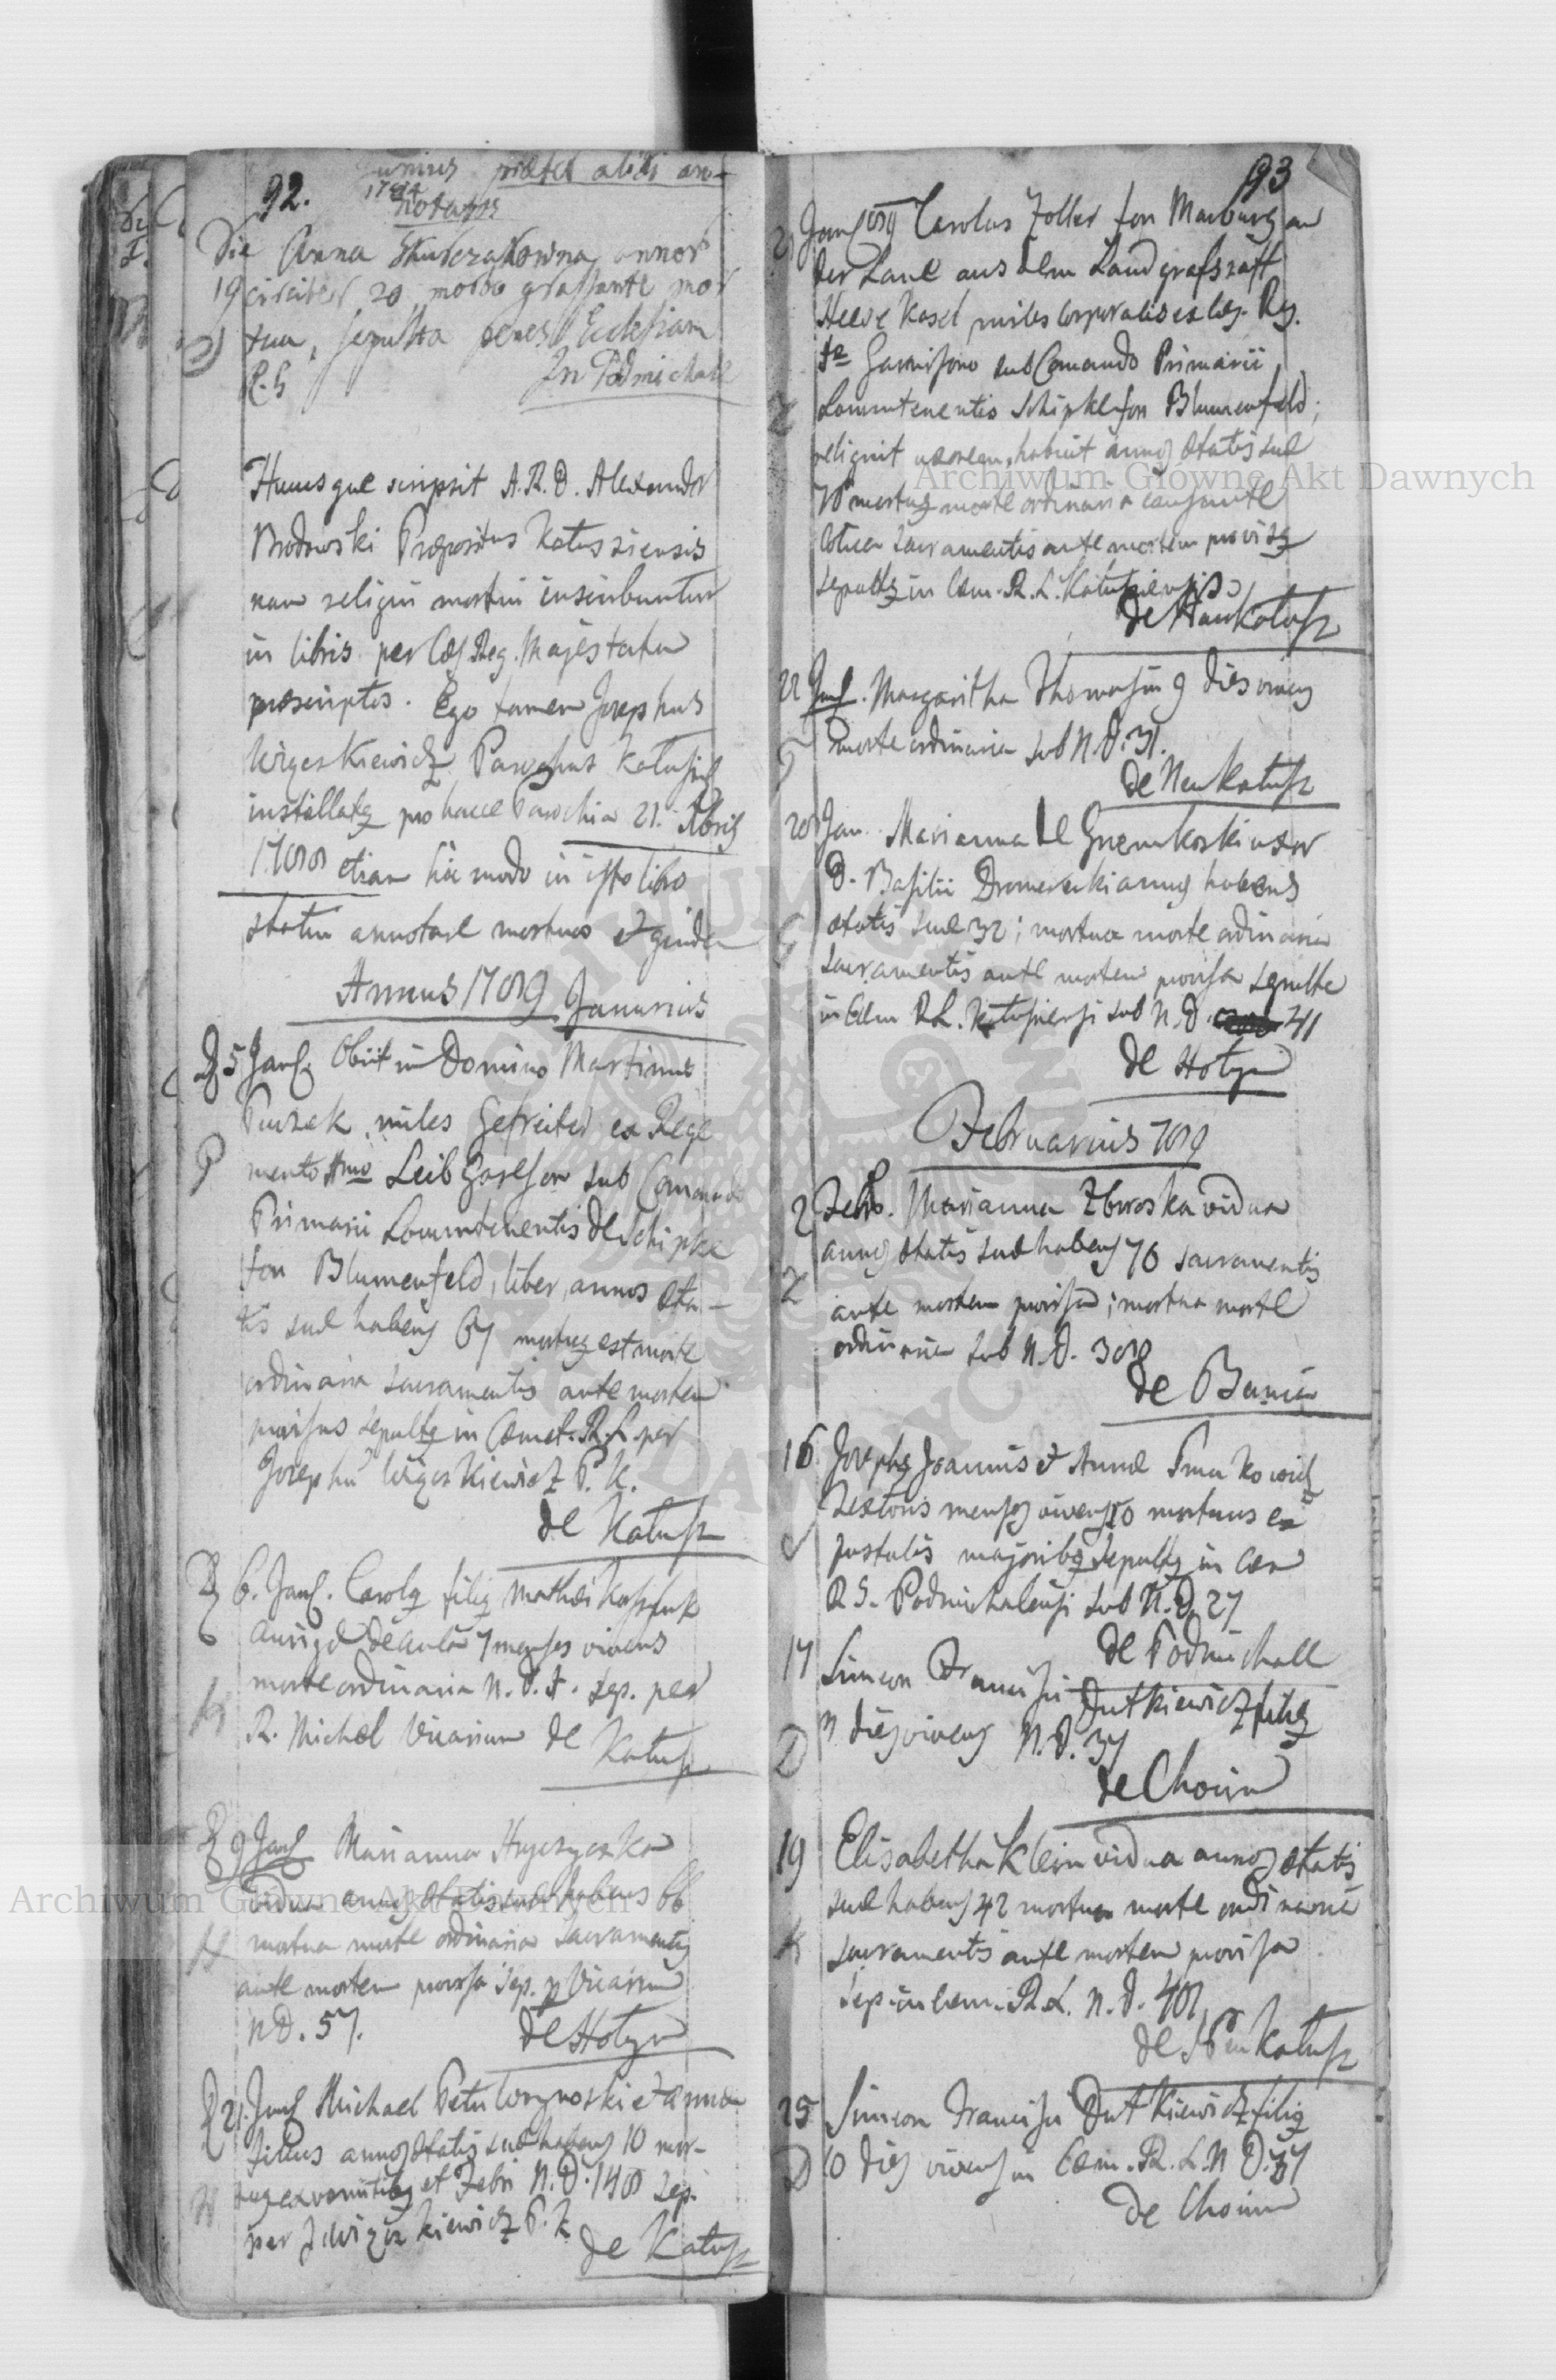 92.
Junius præter alibi an-
1784
notatos
Die Anna annor
19 circiter 20 morbo grassante mor
tua, sepulta penes Ecclesiam
In Podmichale
Hucusque scripsit A. R. D. Alexander
Brodowski Præpositus Katussiensis
nam reliqui mortui inscribuntur
in libris per Cæs Reg. Majestatem
præscriptos. Ego tamen Josephus
Wigoskiewicz Parochus Katussis
installatq pro hacce Parochia 21.
1788 etiam hic modo in isto libro
statui annotare mortuos et quidem
Annus 1789 Januarius
5 Jan. Obiit in Domino Martinus
Puzek miles Gefreiter ex Rege
mento sub Comando
Primarii Locumtenentis de Schipke
fon Blumenfeld, liber, annos æta-
tis suæ habens 67 mortuq est morte
ordinaria sacramentis ante mortem
provisus sepultq in Cæmet. R. L. per
Josephu Wigoskiewicz P. K.
de Katusz
6. Jan. Carolq filiq Mathæi
aurigæ de aula 7 menses vivens
morte ordinaria N. D. 1. sep. per
R. Michæl Vicarium de Katusz
9 Jan Marianna
vidua annos ætatis suæ habens 66
mortua morte ordinaria sacramentis
ante mortem provisa sep. p Vicarium
N D. 57. de Hotyn
21. Jan Michael Petri et Annæ
filius annos ætatis suæ habens 10 mor-
tuq ex vomitibq et Febri N. D. 148 sep.
per J Wigoskiewicz P. K
de Katusz
93
21 Jan 789 Carolus Zoller fon Marburg an
der Lane aus dem Landgrafszaft
Hesse Kasel miles Corporalis ex Cæs. Reg.
Garnisono sub Comando Primarii
Locumtenentis Schipke fon Blumenfeld;
reliquit uxorem, habuit annos ætatis suæ
78 mortuq morte ordinaria
sacramentis ante mortem provisq
sepultq in Cæm. R. L. Katusiensis
de Neu Katusz
22 Jan. Margaritha Thomasin 9 dies vivens
morte ordinaria sub N. D. 31.
de Neu Katusz
28 Jan. Marianna de uxor
D. Basilii annos habens
ætatis suæ 32; mortua morte ordinaria
sacramentis ante mortem provisa sepulta
in Cæm R L. Katusiensi sub N. D. 41
de Hotyn
Februarius 789
2 Febr. Marianna Zbroska vidua
annos ætatis suæ habens 70 sacramentis
ante mortem provisa; mortua morte
ordinaria sub N. D. 308
de Bania
16 Josephq Joannis et Annæ
Textoris menses vivens 10 mortuus ex
pustulis majoribq sepultq in Cæm
R L. Podmichalensi sub N. D. 27
de Podmichale
17 Simeon Francisci Dutkiewicz filiq
dies vivens N. D. 37
de Choin
19 Elisabetha Klein vidua annos ætatis
suæ habens 42 mortua morte ordinaria
sacramentis ante mortem provisa
sep. in Cæm. R. L. N. D. 48
de Neu Katusz
25 Simeon Francisci Dutkiewicz filiq
10 dies vivens in Cæm. R. L. N D. 37
de Choin
Archiwum Główne Akt Dawnych
Archiwum Główne Akt Dawnych